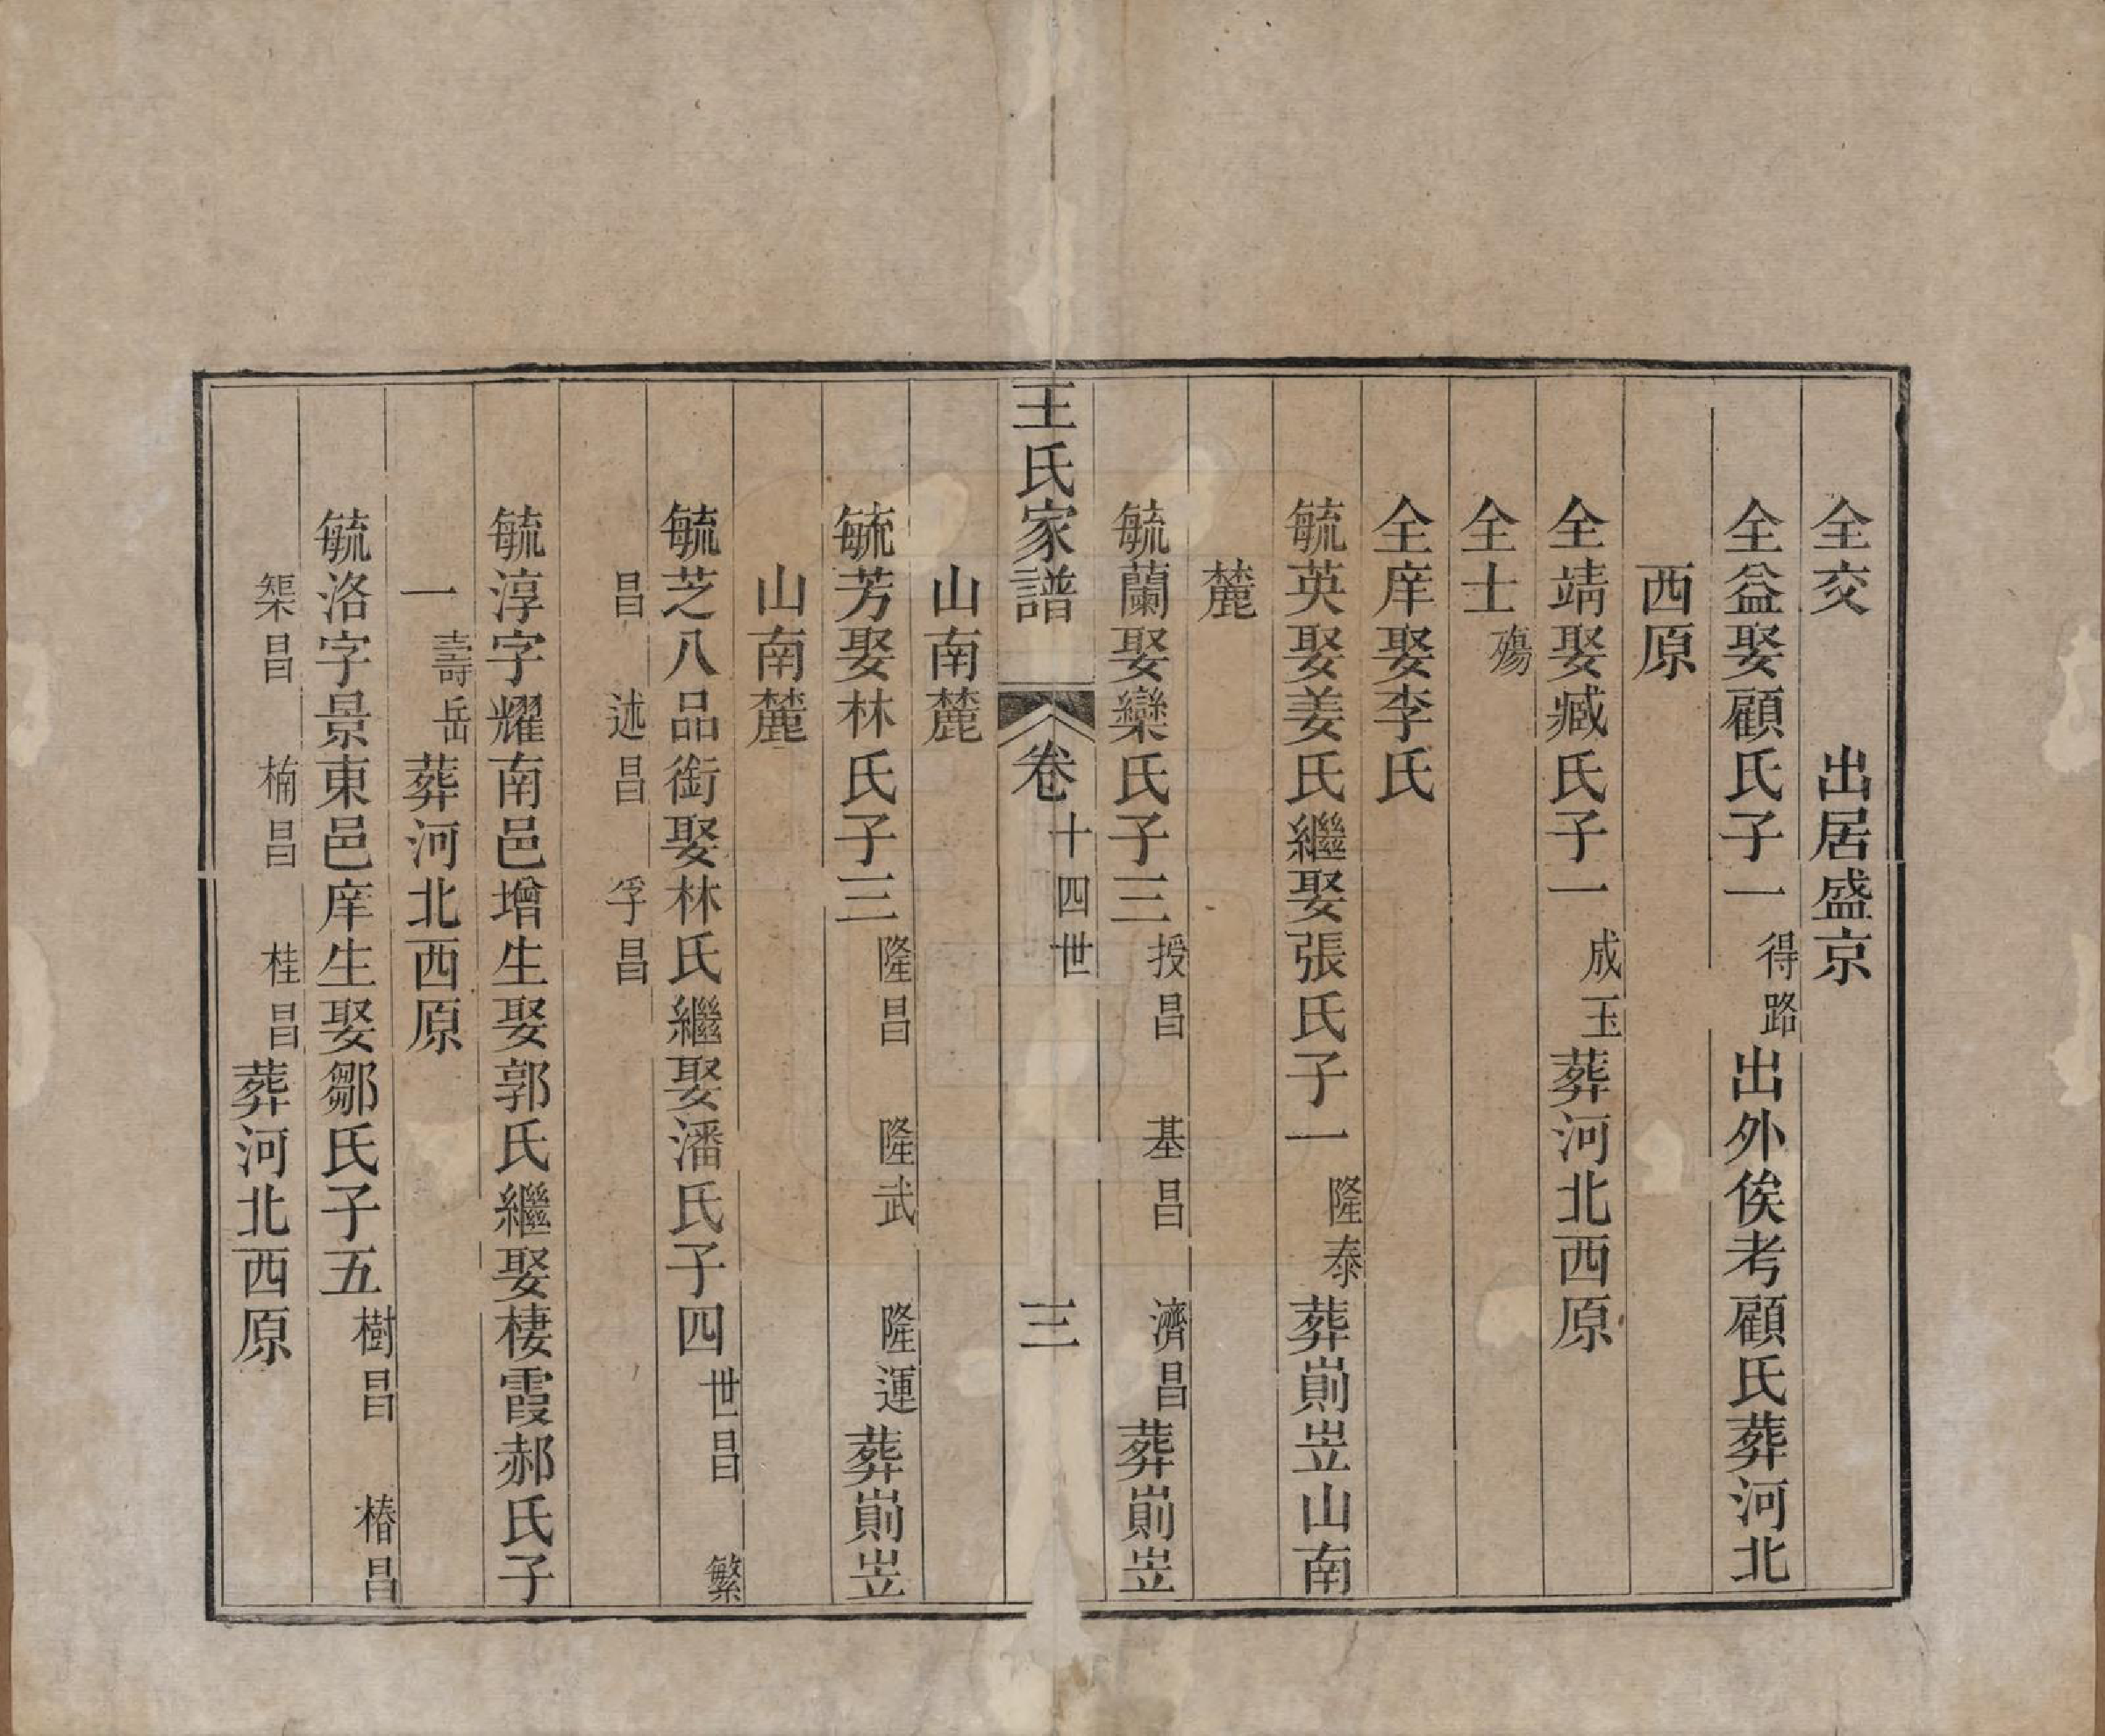 全交　　出居盛京
全益娶顧氏子一得路出外俟考顧氏葬河北
西原
全靖娶臧氏子一成玉葬河北西原
全士殤
全庠娶李氏
毓英娶姜氏繼娶張氏子一隆泰葬崱岦山南
麓
毓蘭娶欒氏子三授昌　基昌　濟昌葬崱岦
山南麓
王氏家譜　卷十四世　三
毓芳娶林氏子三隆昌　隆武　隆運葬崱岦
山南麓
毓芝八品銜娶林氏繼娶潘氏子四世昌　繁
昌　述昌　孚昌
毓淳字耀南邑增生娶郭氏繼娶棲霞郝氏子
一壽岳葬河北西原
毓洛字景東邑庠生娶鄒氏子五樹昌　椿昌
榘昌　楠昌　桂昌葬河北西原